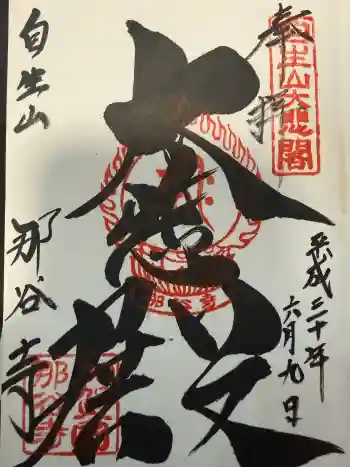 奉拝
自生山大悲閣
平成三十年
六月九日
大悲殿
那谷寺
自生山
那谷寺
那谷寺